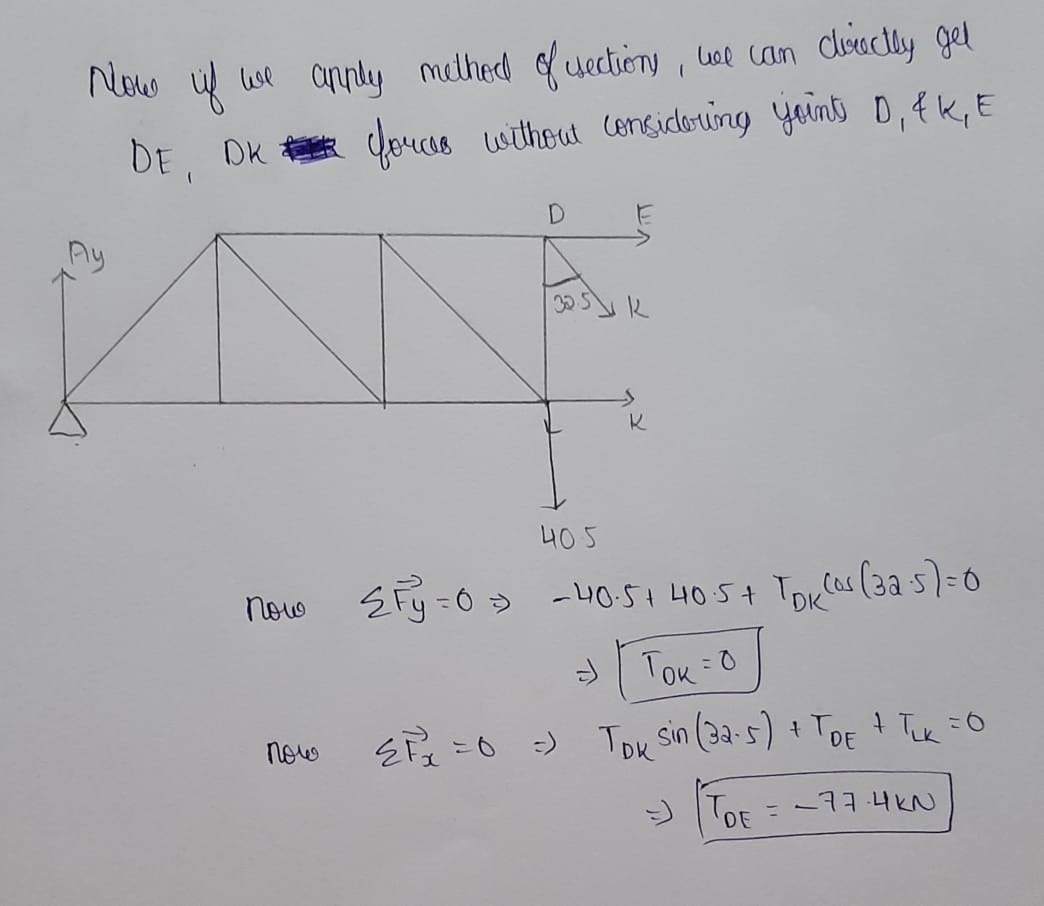 Now if we apply method of sections, we can directly get
DE, DK forces without considering joints D, & K, E
D E
Ay
32.5 K
K
40.5
now ΣFy⃗ = 0 ⇒ -40.5 + 40.5 + T_DK cos(32.5) = 0
⇒ T_DK = 0
now ΣFx⃗ = 0 ⇒ T_DK sin(32.5) + T_DE + T_LK = 0
⇒ T_DE = -77.4 kN